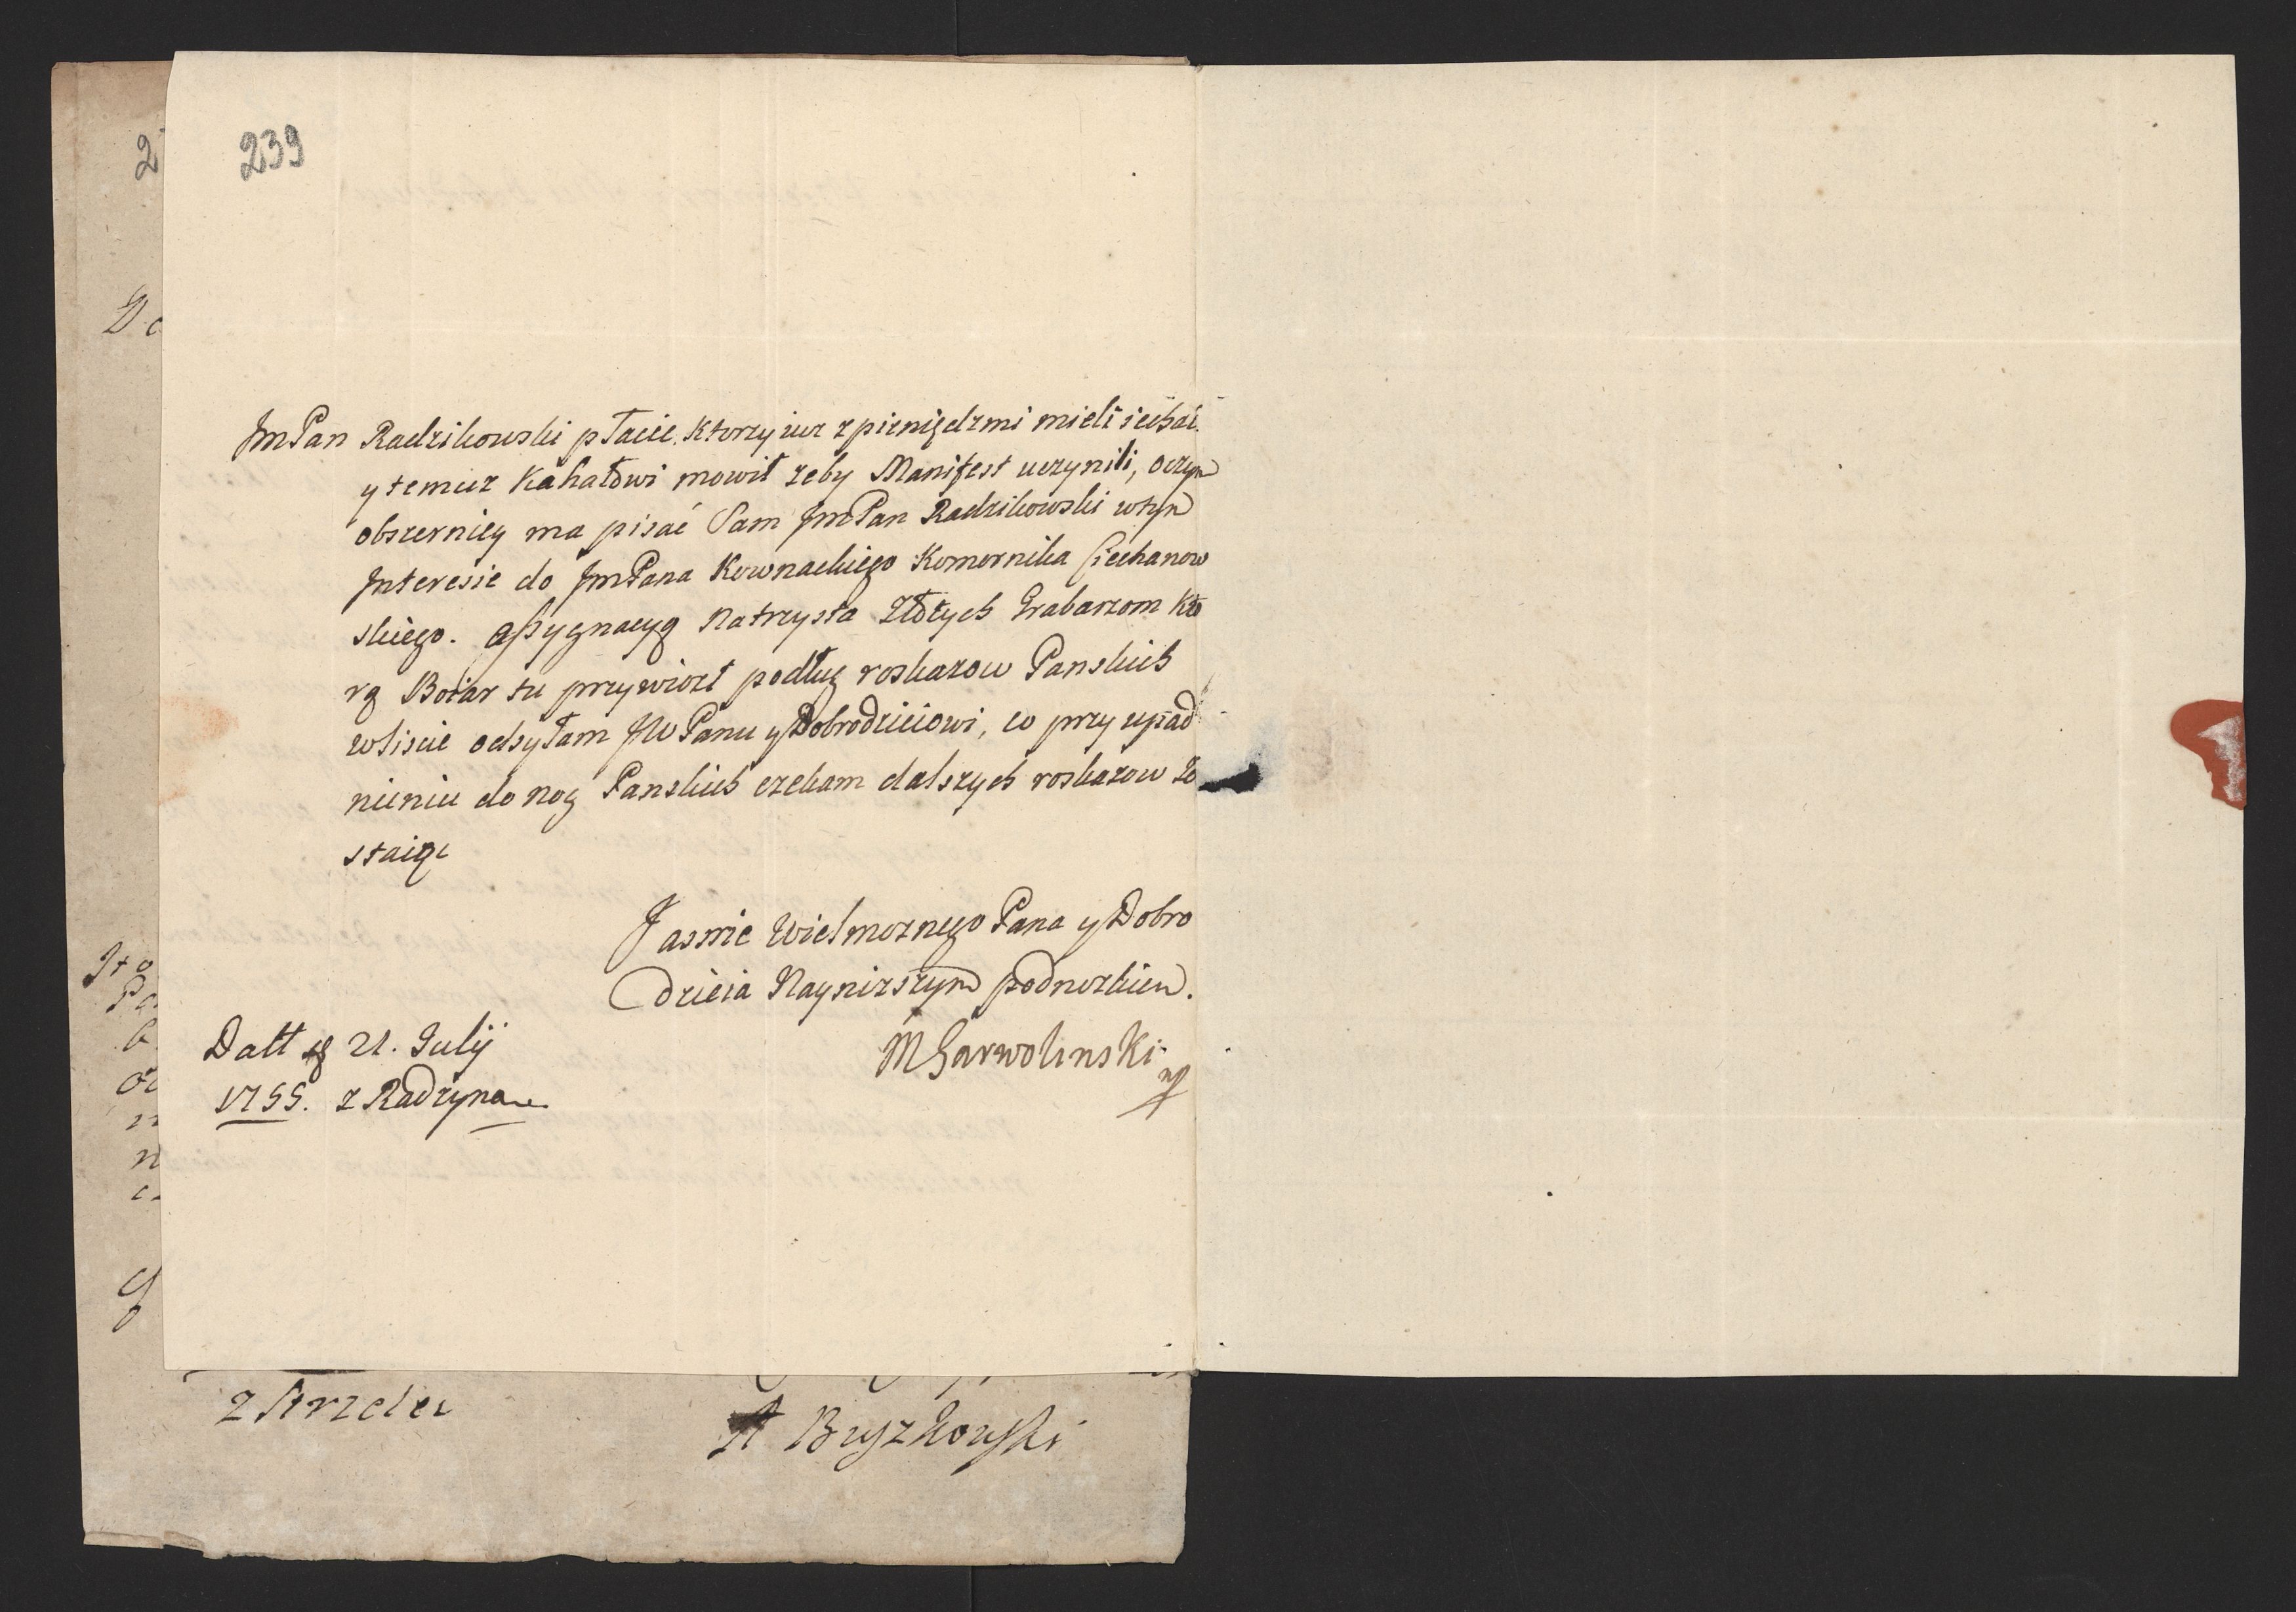 239
JmPan Radzikowski płacić. Ktorzy iuz z pieniędzmi mieli iechać.
y temuz Kahałowi mowił zeby Manifest uczynili, oczym
obszerniey ma pisać Sam JmPan Radzikowski wtym
Jnteresie do JmPana Kownackiego Komornika Ciechanow
skiego. Assygnacyą Natrzysta Złotych Grabarzom kto
rą Boiar tu przywiozł podług roskazow Panskich
wliscie odsyłam JW Panu y Dobrodzieiowi, co przy upad
nieniu do nog Panskich czekam dalszych roskazow Zo
staiąc
Jasnie Wielmoznego Pana y Dobro
dzieia Nayniższym podnozkiem.
MGarwolinski
mp
Datt 21. Julij
1755. z Radzyna
z Strzelec
A Buszkowski